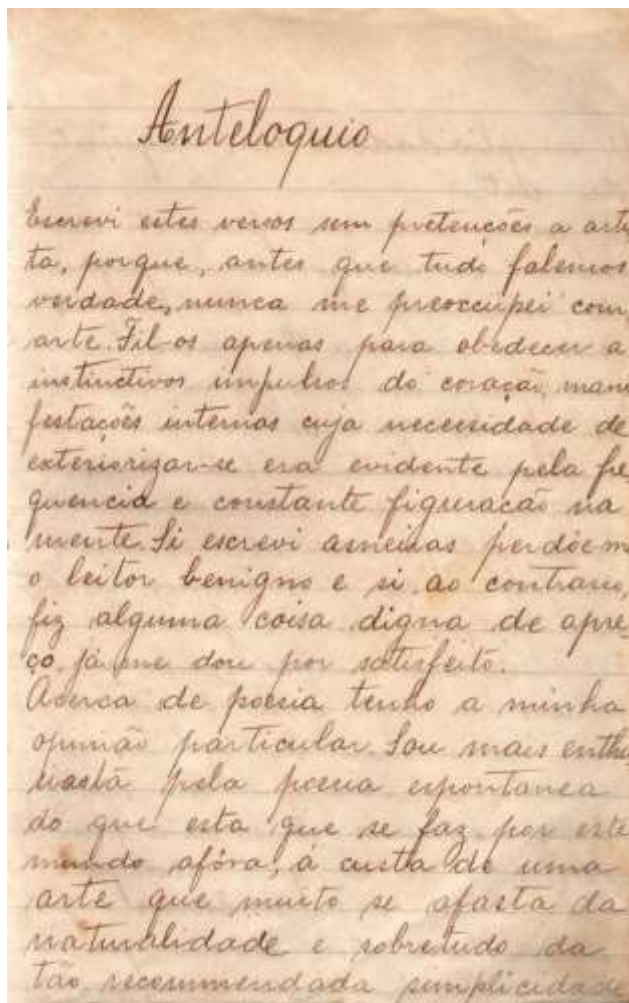 Anteloquio
Escrevi estes versos sem pretenções a artis
ta, porque, antes que tudo falemos
verdade, nunca me preoccupei com
arte. Fil-os apenas para obedecer a
instinctivos impulsos do coração, mani
festações internas cuja necessidade de
exteriorizar-se era evidente pela fre
quencia e constante figuração na
mente. Si escrevi asneiras perdôe-m
o leitor benigno e si, ao contrario,
fiz alguma coisa digna de apre-
ço, já me dou por satisfeito.
Acerca de poesia tenho a minha
opinião particular. Sou mais enthu
siasta pela poesia espontanea
do que esta que se faz por este
mundo afóra, á custa de uma
arte que muito se afasta da
naturalidade e sobretudo da
tão recommendada simplicidade